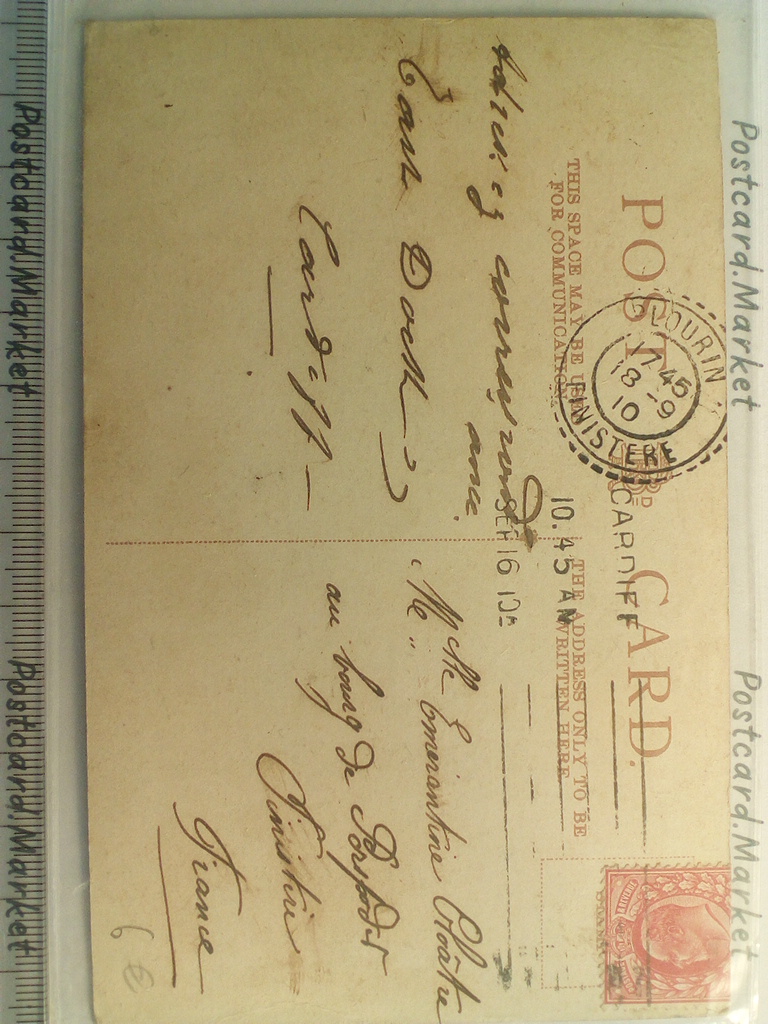 POST CARD.
THIS SPACE MAY BE USED
FOR COMMUNICATION.
THE ADDRESS ONLY TO BE
WRITTEN HERE
PLOURIN
17 45
18 - 9
10
FINISTERE
CARDIFF
10.45 AM
SEP 16 10
East Dock
Cardiff
Melle Emerantine Cloâtre
au bourg de Porspoder
Finistère
France
Postcard.Market
Postcard.Market
Postcard.Market
Postcard.Market